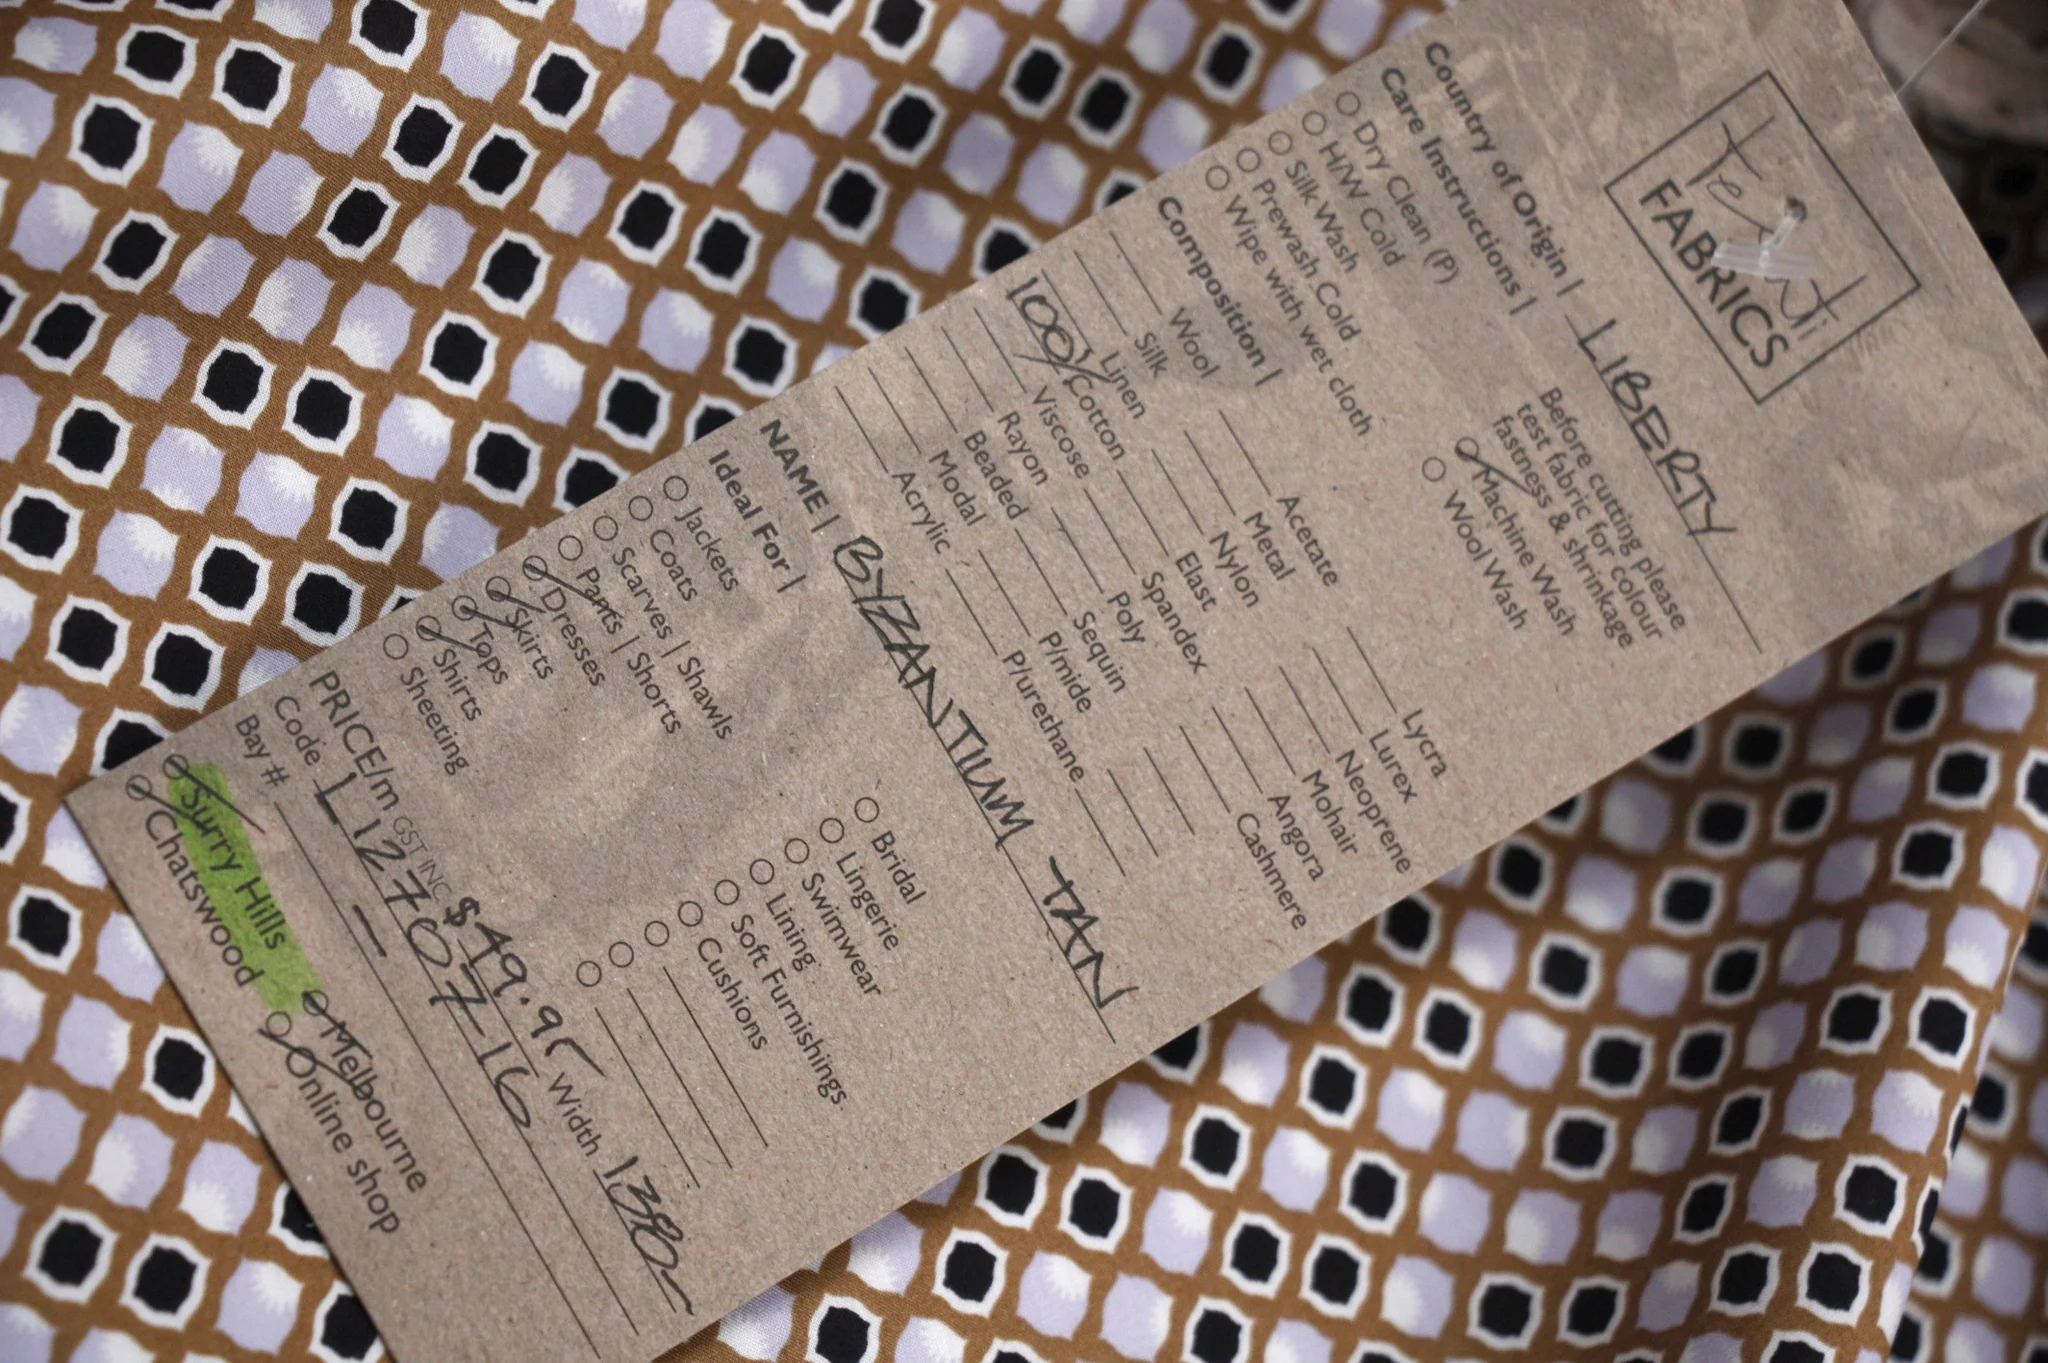 Tessuti
FABRICS
Country of Origin | LIBERTY
Care Instructions |
Before cutting please
test fabric for colour
fastness & shrinkage
Dry Clean (P)
H/W Cold
Silk Wash
Prewash Cold
Wipe with wet cloth
Machine Wash
Wool Wash
Composition |
Wool
Silk
Linen
100% Cotton
Viscose
Rayon
Beaded
Modal
Acrylic
Acetate
Metal
Nylon
Elast
Spandex
Poly
Sequin
P/mide
P/urethane
Lycra
Lurex
Neoprene
Mohair
Angora
Cashmere
NAME | BYZANTIUM TAN
Ideal For |
Jackets
Coats
Scarves | Shawls
Pants | Shorts
Dresses
Skirts
Tops
Shirts
Sheeting
Bridal
Lingerie
Swimwear
Lining
Soft Furnishings
Cushions
PRICE/m GST INC $49.95 Width 138
Code L12707-16
Bay # —
Surry Hills
Chatswood
Melbourne
Online shop